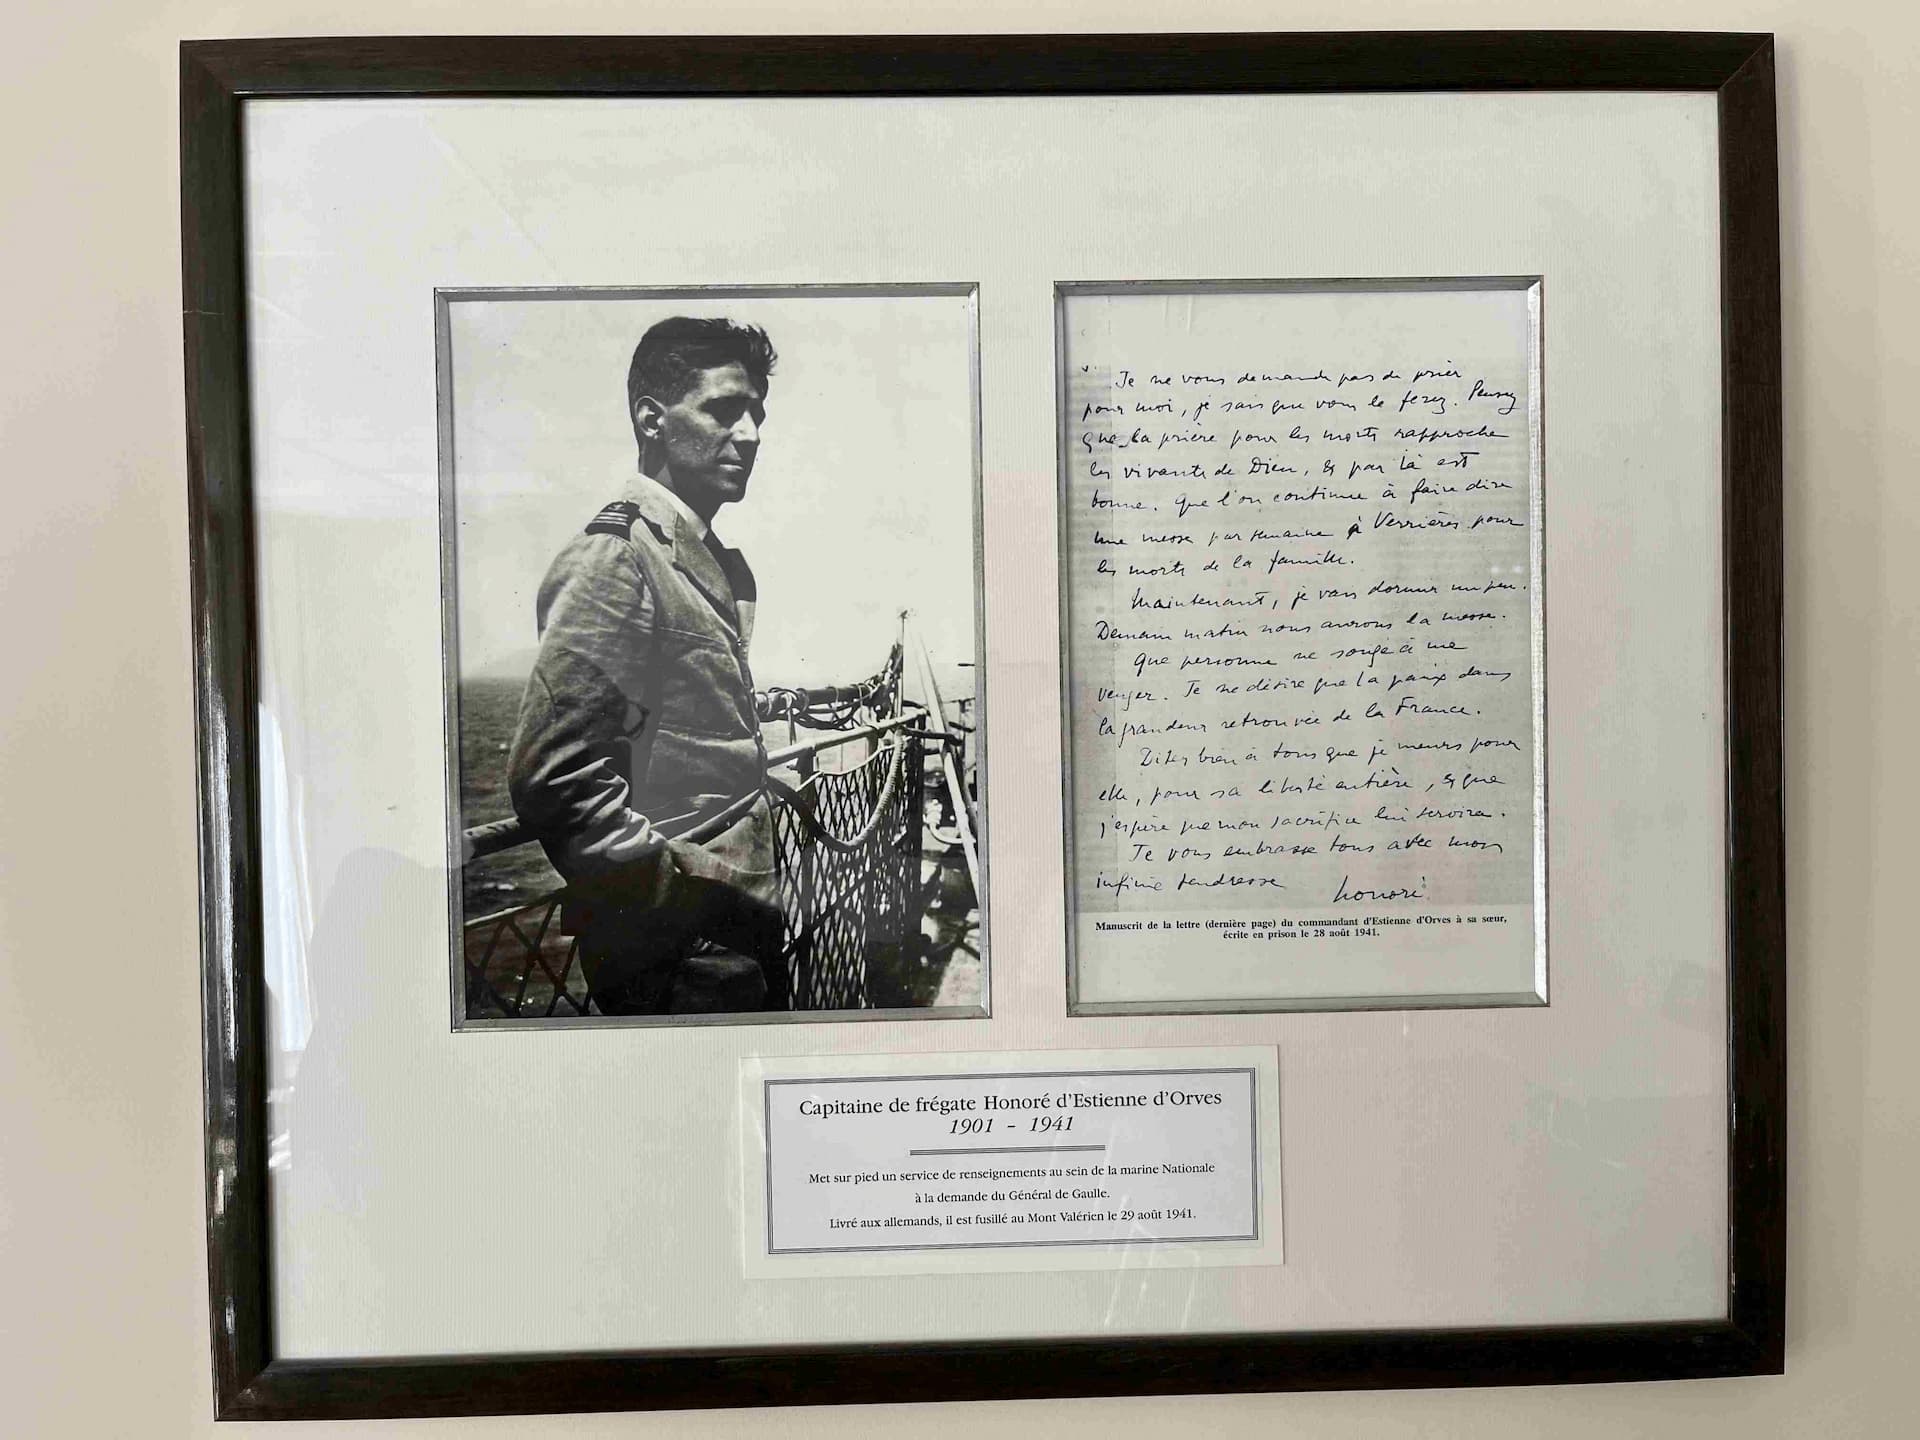 Je ne vous demande pas de prier
pour moi, je sais que vous le ferez. Pensez
que la prière pour les morts rapproche
les vivants de Dieu, & par là est
bonne. Que l'on continue à faire dire
une messe par semaine à Verrières pour
les morts de la famille.
Maintenant, je vais dormir un peu.
Demain matin nous aurons la messe.
Que personne ne songe à me
venger. Je ne désire que la paix dans
la grandeur retrouvée de la France.
Dites bien à tous que je meurs pour
elle, pour sa liberté entière, & que
j'espère que mon sacrifice lui servira.
Je vous embrasse tous avec mon
infinie tendresse
honoré
Manuscrit de la lettre (dernière page) du commandant d'Estienne d'Orves à sa sœur,
écrite en prison le 28 août 1941.
Capitaine de frégate Honoré d'Estienne d'Orves
1901 - 1941
Met sur pied un service de renseignements au sein de la marine Nationale
à la demande du Général de Gaulle.
Livré aux allemands, il est fusillé au Mont Valérien le 29 août 1941.